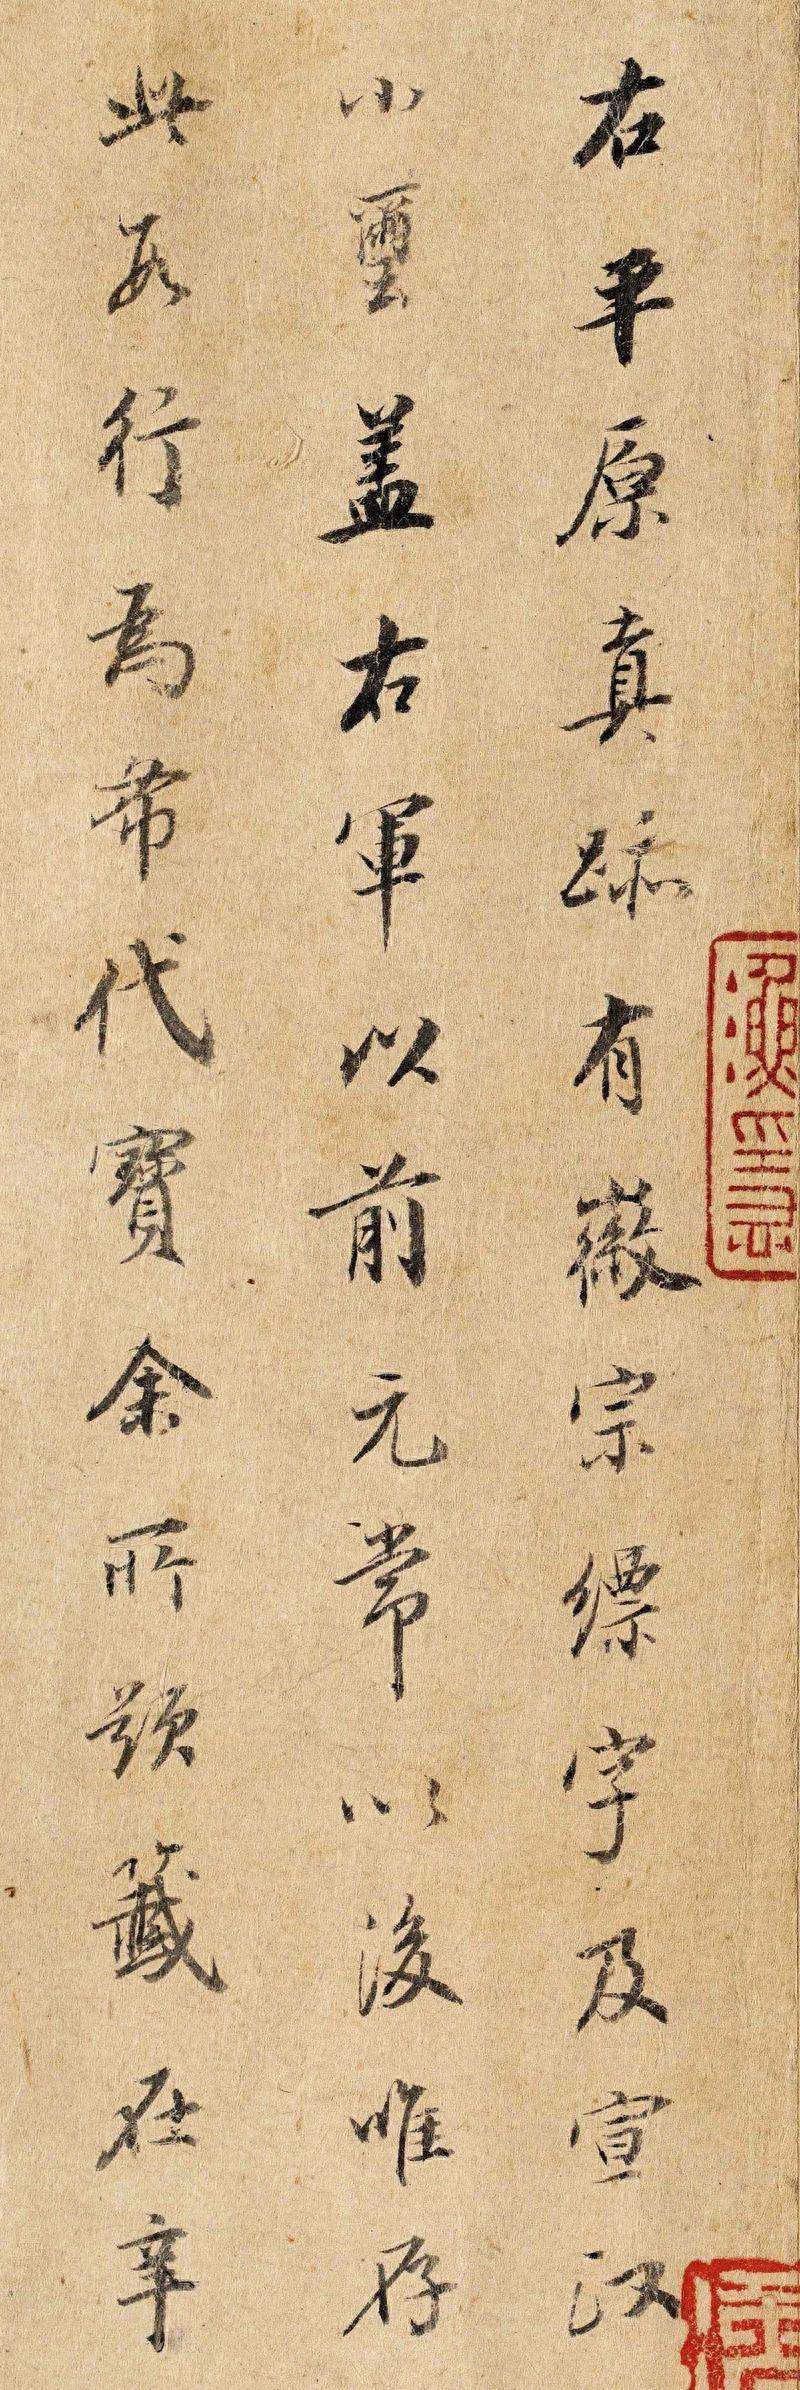 右平原真跡有徽宗縹字及宣政
小璽盖右軍以前元常以後唯存
此數行為希代寶余所題籤在辛